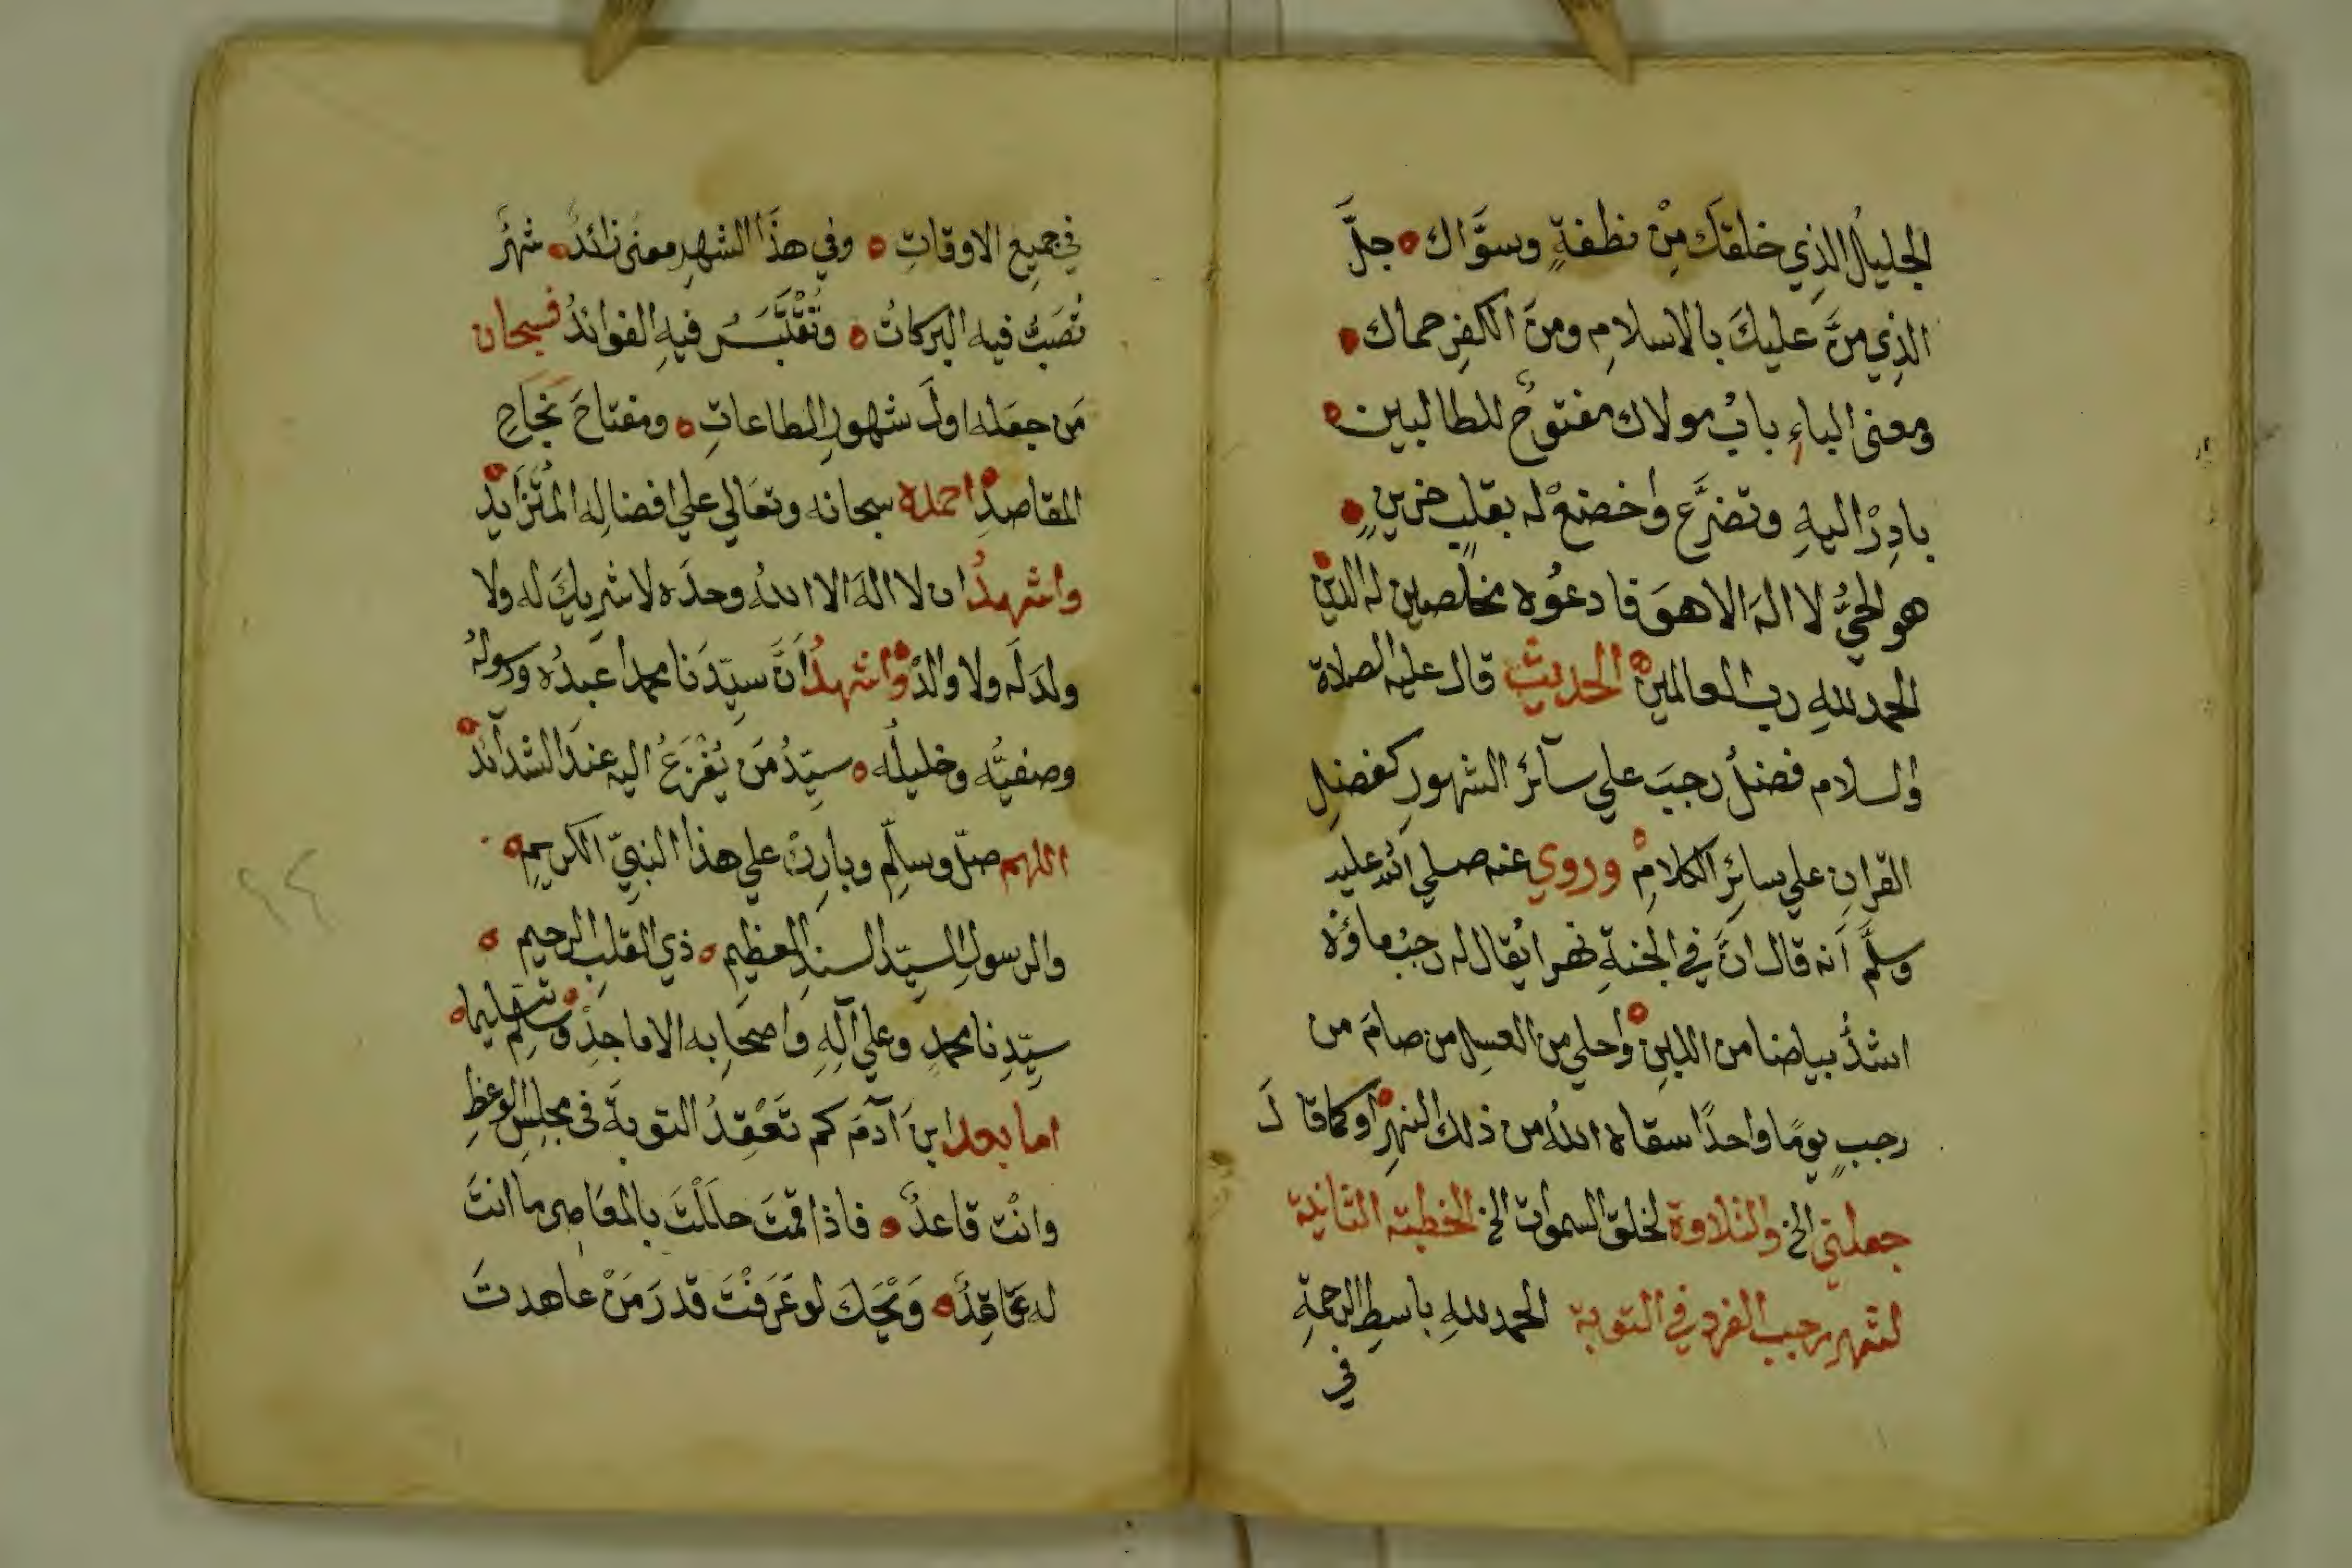 الجليل الذي خلقك مِنْ نطفةٍ وسوَّاك جلَّ
الذِي منَّ عليكَ بالاسلامِ ومنَ الكفرِ حماك
ومعنى الباءِ بابُ مولاك مفتوحٌ للطالبين
بادِرْ اليهِ وتضرَّع واخضعْ له بقلبٍ حزينٍ
هو الحيُّ لا الهَ الا هوَ فادعُوه مخلصين له الدين
الحمد للهِ ربِ العالمين الحديث قال عليه الصلاة
والسلام فضلُ رجبَ علي سآئر الشهورِ كفضلِ
القرانِ علي سائرِ الكلامِ وروي عنه صلي الله عليه
وسلَّم أنه قال انَّ في الجنةِ نهرا يُقال له رجبُ ماؤه
اشدُّ بياضا من اللبنِ وأحلي من العسل من صامَ من
رجبٍ يومًا واحدًا سقاه اللهُ من ذلك النهرِ او كما قالَ
جعلتي الخ والتلاوة لخلق السموات الخ الخطبة الثانية
لشهر رجب الفرد في التوبة الحمد للهِ باسطِ الرحمةِ
في
في جميع الاوقاتِ وفي هذَا الشهرِ معنى زائدٌ شهرٌ
تُصَبُّ فيه البركاتُ وتُقْتَبَسُ فيهِ الفوائدُ فسبحان
مَن جعَله اولَ شهورِ الطاعاتِ ومفتاحَ نجَاحِ
المقاصدِ احمده سبحانه وتعَالي علي افضالِه المُتَزَايدِ
واشهدُ ان لا الهَ الا اللهُ وحدَه لا شرِيكَ له ولا
ولدَ لَه ولا والدْ واشهدُ أنَّ سيّدَنا محمدا عبدُه ورسولُه
وصفيُّه وخليلُه سيّدُ مَن يُفْزَعُ اليه عندَ الشدآئد
اللهم صلّ وسلِّم وبارِكْ علي هذا النبيّ الكريمِ
والرسولِ السيّد السندِ العظيمِ ذي القلبِ الرحيم
سيّدِنا محمدٍ وعلي آلِهِ واصحَابِه الاماجِدْ وسلّم تسليما
اما بعد ابنَ آدمَ كم تَعْقِدُ التوبةَ فى مجلِسِ الوعظِ
وانْت قاعدٌ فاذا قمتَ حلَلْتَ بالمعَاصِي ما انتَ
له عَاقِدٌ وَيْحَكَ لو عَرَفْتَ قدرَ مَنْ عاهدتَ
٢٤